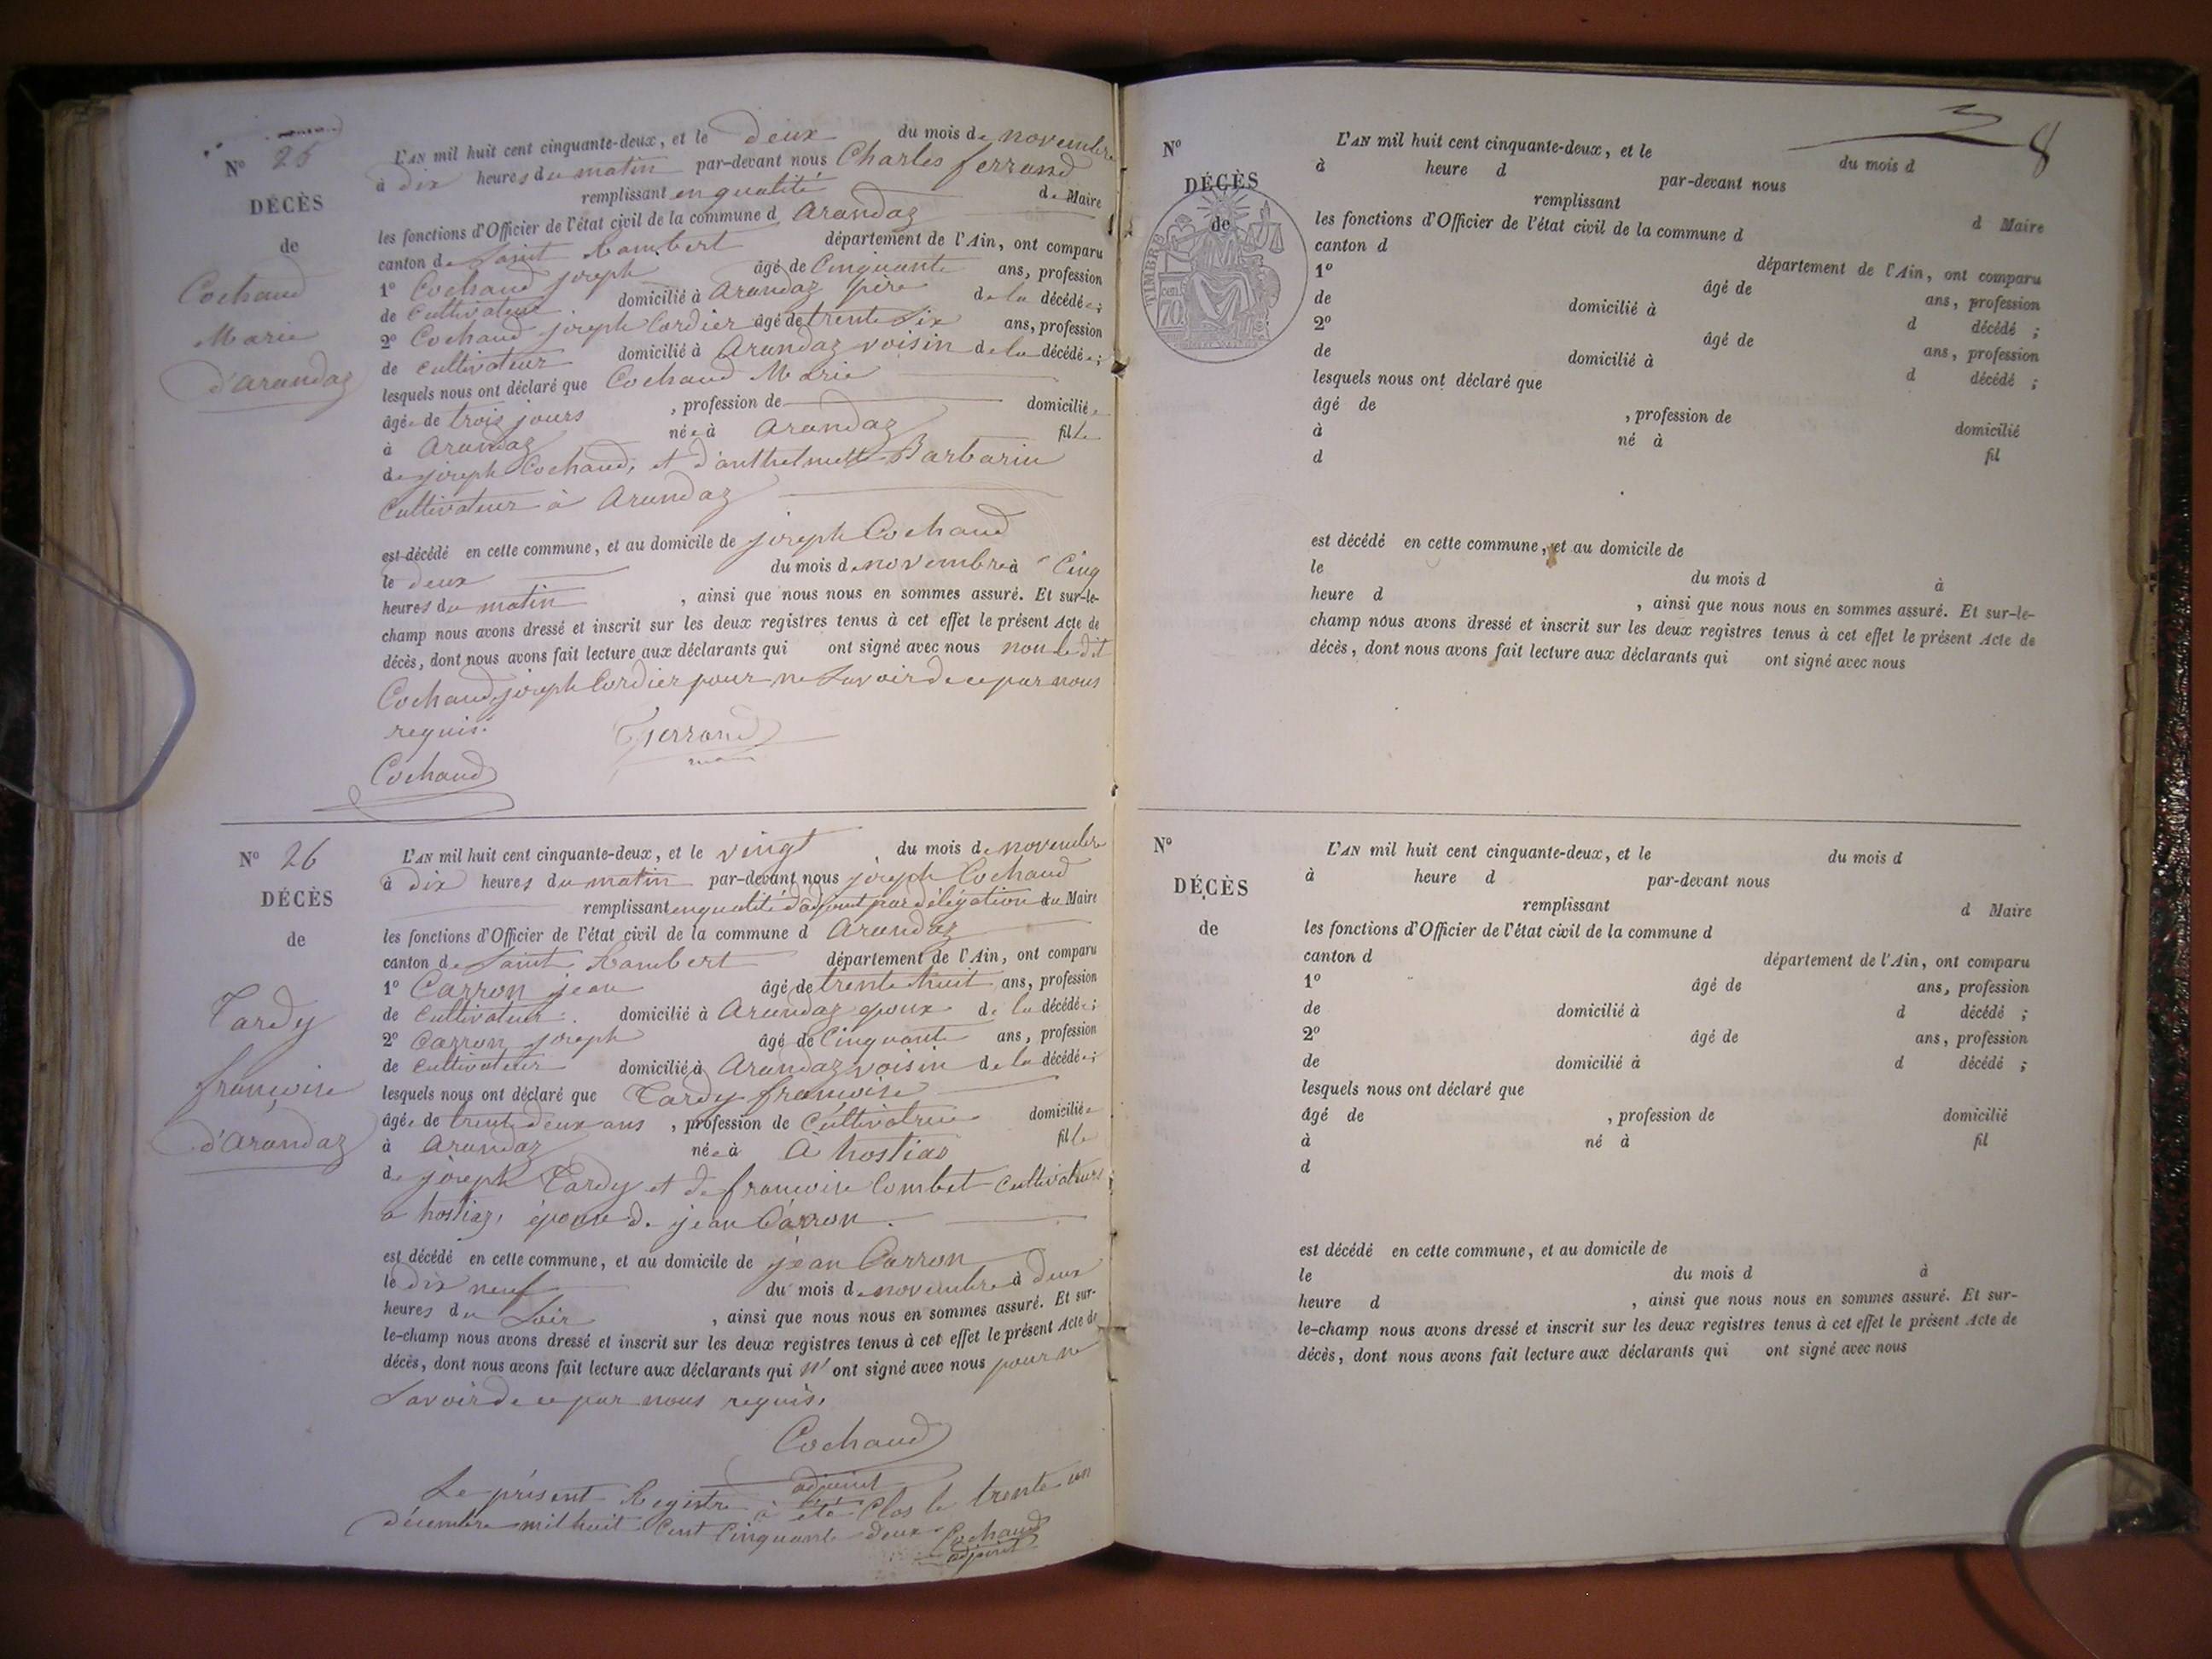 N° 25
DÉCÈS
de
Cochaud
Marie
d'arandaz
L'AN mil huit cent cinquante-deux, et le deux du mois de novembre
à dix heures du matin par-devant nous Charles ferrand
remplissant en qualité de Maire
les fonctions d'Officier de l'état civil de la commune d arandaz
canton de Saint Rambert département de l'Ain, ont comparu
1° Cochaud joseph âgé de Cinquante ans, profession
de Cultivateur domicilié à Arandaz père de la décédée;
2° Cochaud joseph Cordier âgé de trente Six ans, profession
de cultivateur domicilié à Arandaz voisin de la décédée;
lesquels nous ont déclaré que Cochaud Marie
âgée de trois jours , profession de domiciliée
à Arandaz née à Arandaz fille
de joseph Cochaud, et d'anthelmette Barbarin
Cultivateur à Arandaz
est décédé en cette commune, et au domicile de joseph Cochaud
le deux du mois de novembre à Cinq
heures du matin , ainsi que nous nous en sommes assuré. Et sur-le-
champ nous avons dressé et inscrit sur les deux registres tenus à cet effet le présent Acte de
décès, dont nous avons fait lecture aux déclarants qui ont signé avec nous non le dit
Cochaud joseph Cordier pour ne Savoir de ce par nous
requis.
Ferrand
Cochaud
N° 26
DÉCÈS
de
Tardy
françoise
d'Arandaz
L'AN mil huit cent cinquante-deux, et le vingt du mois de novembre
à dix heures du matin par-devant nous joseph Cochaud
remplissant en qualité d'adjoint par délégation du Maire
les fonctions d'Officier de l'état civil de la commune d Arandaz
canton de Saint Rambert département de l'Ain, ont comparu
1° Carron jean âgé de trente huit ans, profession
de Cultivateur. domicilié à Arandaz epoux de la décédée;
2° Carron joseph âgé de Cinquante ans, profession
de Cultivateur domicilié à Arandaz voisin de la décédée;
lesquels nous ont déclaré que Tardy françoise
âgée de trente deux ans , profession de Cultivatrice domiciliée
à Arandaz née à A hostiaz fille
de joseph Tardy et de françoise Combet Cultivateurs
a hostiaz, épouse de jean Carron.
est décédé en cette commune, et au domicile de jean Carron
le dix neuf du mois de novembre à deux
heures du Soir , ainsi que nous nous en sommes assuré. Et sur-
le-champ nous avons dressé et inscrit sur les deux registres tenus à cet effet le présent Acte de
décès, dont nous avons fait lecture aux déclarants qui n' ont signé avec nous pour ne
Savoir de ce par nous requis.
Cochaud
adjoint
Le présent Registre à été Clos le trente un
décembre mil huit Cent Cinquante deux. Cochaud
adjoint
8
N°
DÉCÈS
de
TIMBRE
70
L'AN mil huit cent cinquante-deux, et le du mois d
à heure d par-devant nous
remplissant d Maire
les fonctions d'Officier de l'état civil de la commune d
canton d département de l'Ain, ont comparu
1° âgé de ans, profession
de domicilié à d décédé ;
2° âgé de ans, profession
de domicilié à d décédé ;
lesquels nous ont déclaré que
âgé de , profession de domicilié
à né à fil
d
est décédé en cette commune, et au domicile de
le du mois d à
heure d , ainsi que nous nous en sommes assuré. Et sur-le-
champ nous avons dressé et inscrit sur les deux registres tenus à cet effet le présent Acte de
décès, dont nous avons fait lecture aux déclarants qui ont signé avec nous
N°
DÉCÈS
de
L'AN mil huit cent cinquante-deux, et le du mois d
à heure d par-devant nous
remplissant d Maire
les fonctions d'Officier de l'état civil de la commune d
canton d département de l'Ain, ont comparu
1° âgé de ans, profession
de domicilié à d décédé ;
2° âgé de ans, profession
de domicilié à d décédé ;
lesquels nous ont déclaré que
âgé de , profession de domicilié
à né à fil
d
est décédé en cette commune, et au domicile de
le du mois d à
heure d , ainsi que nous nous en sommes assuré. Et sur-
le-champ nous avons dressé et inscrit sur les deux registres tenus à cet effet le présent Acte de
décès, dont nous avons fait lecture aux déclarants qui ont signé avec nous